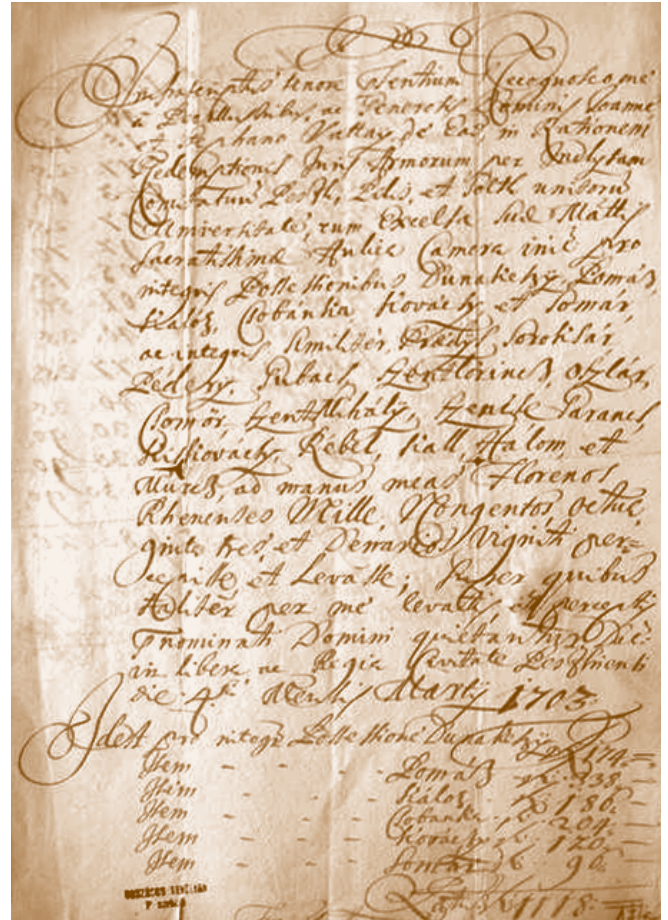 Infrascriptus tenore psentium Recognosco me
à Perillustribus, ac Generosis Dominis Joanne
et Stephano Vattay de Eadem in Rationem
Redemptionis Juris Armorum per Inclytum
Comitatum Pesth, Pilis, et Solth unitorum
Universitate, cum Excelsa Suae Mattis
Sacratissimae Aulica Camera pro
integris Possessionibus Dunakeszy, Pomáz,
Kalóz, Csobánka, Kovácsy, et Tomár,
ac integris similiter Praedys Soroksár
Pedeky, Szentlorincz, Oszlár,
Csömör, Szent Mihály, Parancs,
Kiskovácsy, Kebel, Kiall, Hálom, et
ad manus meas Florenos
Rhenenses Mille, Nongentos, Octua
ginta tres, et Denarios Viginti per=
cepisse et Levasse; super quibus
taliter per me levatis, et perceptis
pnominati Domini
in libera, ac Regia Civitate Pesthiensi
die 4. Mensis Marty 1703.
Idest pro integra Possessione Dunakeszy 174.
Item - - - Pomáz 338.
Item - - - Kalóz 186.
Item - - - Csobánka 204.
Item - - - Kovácsy 120.
Item - - - Tomár 96.
Latus 1118.
ORSZÁGOS LEVÉLTÁR